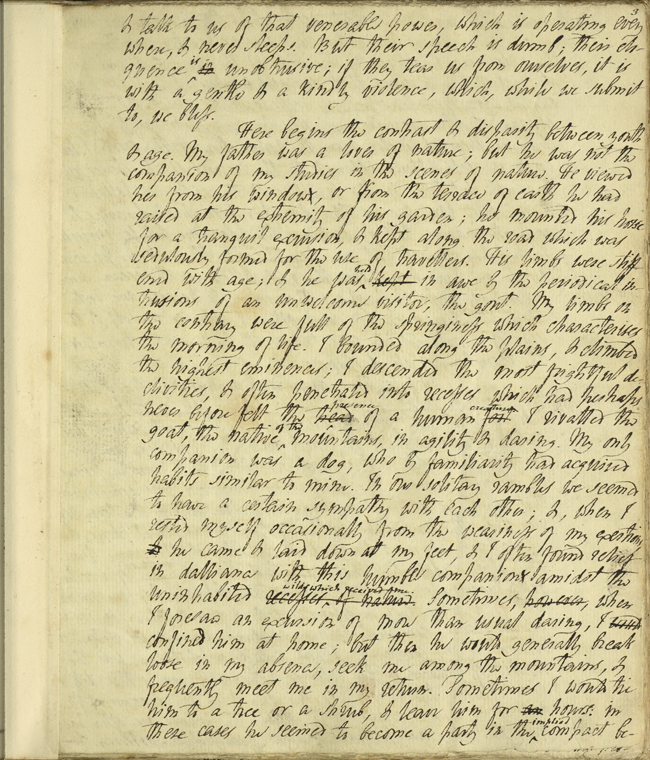 3
& talk to us of that venerable power, which is operating every
where, & never sleeps. But their speech is dumb; their elo-
quence is in unobtrusive; if they tear us from ourselves, it is
with a gentle & a kindly violence, which, while we submit
to, we bless.
Here begins the contrast & disparity between youth
& age. My father was a lover of nature; but he was not the
companion of my studies in the scenes of nature. He viewed
her from his window, or from the terrace of earth he had
raised at the extremity of his garden; he mounted his horse
for a tranquil excursion, & kept along the road which was
sedulously formed for the use of travellers. His limbs were stiff
end with age; & he was held kept in awe by the periodical in
trusions of an unwelcome visitor, the gout. My limbs on
the contrary were full of the springiness which characterises
the morning of life. I bounded along the plains, & climbed
the highest eminences; I descended the most frightful de-
clivities, & often penetrated into recesses which had perhaps
never before felt the tread presence of a human foot creature. I rivalled the
goat, the native of the mountains, in agility & daring. My only
companion was a dog, who by familiarity had acquired
habits similar to mine. In our solitary rambles we seemed
to have a certain sympathy with each other; &, when I
rested myself occasionally from the weariness of my exertions,
& he came & laid down at my feet, & I often found relief
in dalliance with this humble companion amidst the
uninhabited recesses of nature wilds which received me. Sometimes, however, when
I foresaw an excursion of more than usual daring, I
confined him at home; but then he would generally break
loose in my absence, seek me among the mountains, &
frequently meet me in my return. Sometimes I would tie
him to a tree or a shrub, & leave him for an hours: in
these cases he seemed to become a party in the implied compact be-